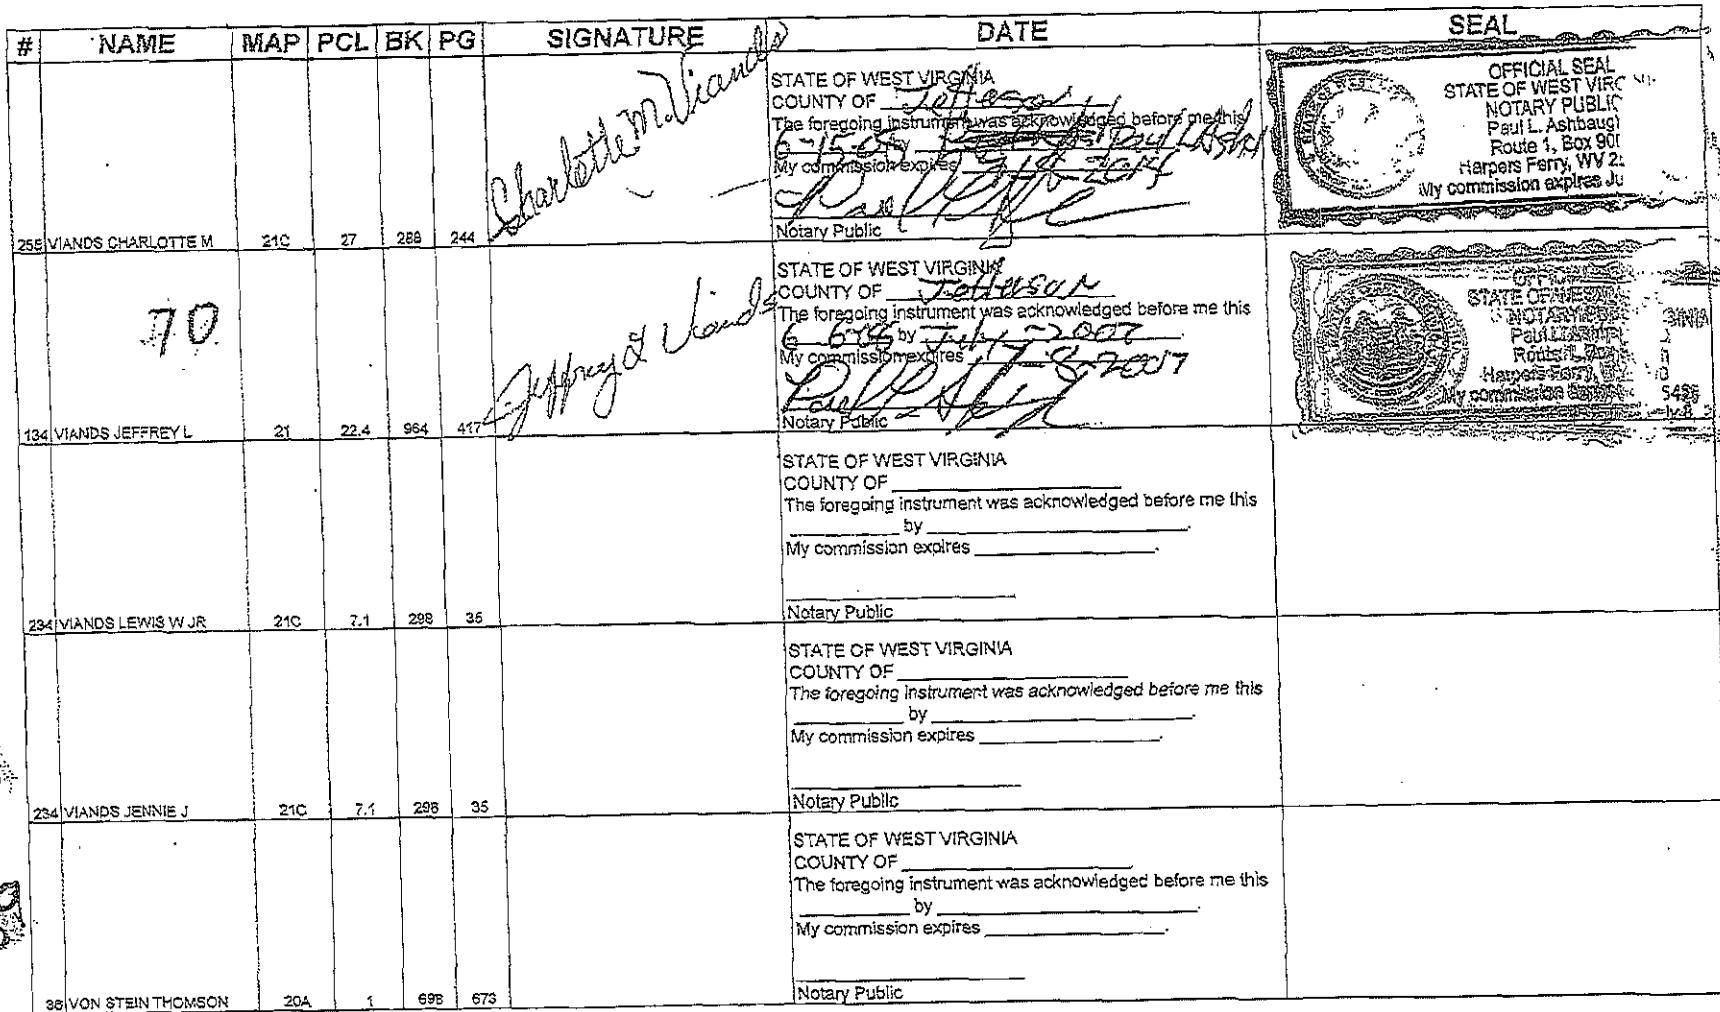 # NAME MAP PCL BK PG SIGNATURE DATE SEAL
255 VIANDS CHARLOTTE M 21C 27 288 244
Charlotte M. Viands
STATE OF WEST VIRGINIA
COUNTY OF Jefferson
The foregoing instrument was acknowledged before me this
6-15-05 by Paul L Ash
My commission expires 2014
Notary Public
OFFICIAL SEAL
STATE OF WEST VIRG
NOTARY PUBLIC
Paul L. Ashbaug
Route 1, Box 90
Harpers Ferry, WV 2
My commission expires Ju
70
134 VIANDS JEFFREY L 21 22.4 964 417
Jeffrey L Viands
STATE OF WEST VIRGINIA
COUNTY OF Jefferson
The foregoing instrument was acknowledged before me this
by July 2007
My commission expires 7-8-2007
Notary Public
STATE OF WES
NOTARY
Paul L
Route 1,
Harpers Ferry,
My commission
234 VIANDS LEWIS W JR 21C 7.1 298 35
STATE OF WEST VIRGINIA
COUNTY OF
The foregoing instrument was acknowledged before me this
by
My commission expires
Notary Public
234 VIANDS JENNIE J 21C 7.1 298 35
STATE OF WEST VIRGINIA
COUNTY OF
The foregoing instrument was acknowledged before me this
by
My commission expires
Notary Public
36 VON STEIN THOMSON 20A 1 698 673
STATE OF WEST VIRGINIA
COUNTY OF
The foregoing instrument was acknowledged before me this
by
My commission expires
Notary Public